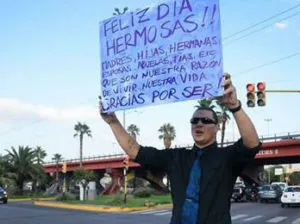 FELIZ DIA
HERMOSAS!!
MADRES, HIJAS, HERMANAS
ESPOSAS, ABUELAS, TIAS, ETC
QUE SON NUESTRA RAZÓN
DE VIVIR, NUESTRA VIDA
GRACIAS POR SER